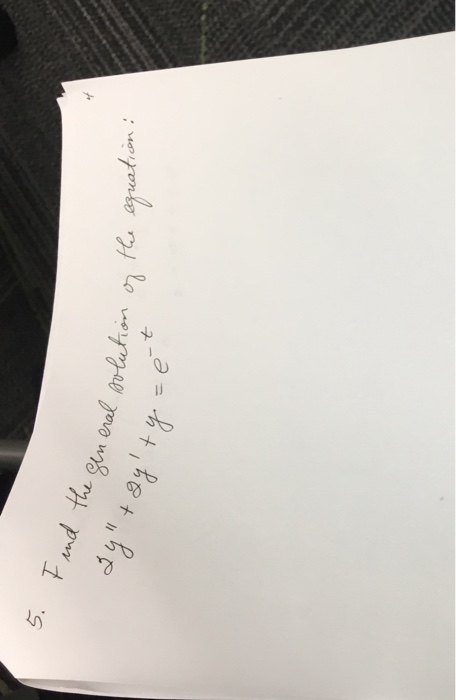 4
5. Find the general solution of the equation:
2y" + 2y' + y = e^-t